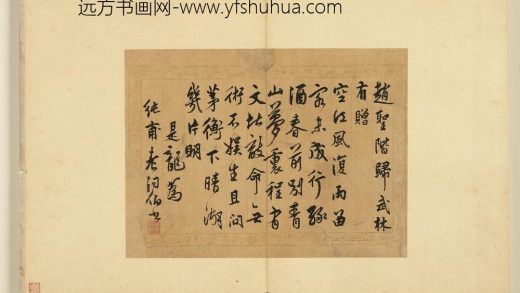 远方书画网-www.yfshuhua.com
趙聖階歸武林
有贈
空江風復雨留
客未成行綠
酒春前別青
山夢裏程
文址敲命
術不娱生且問
茅衡下晴湖
幾片明
是龍為
純甫老